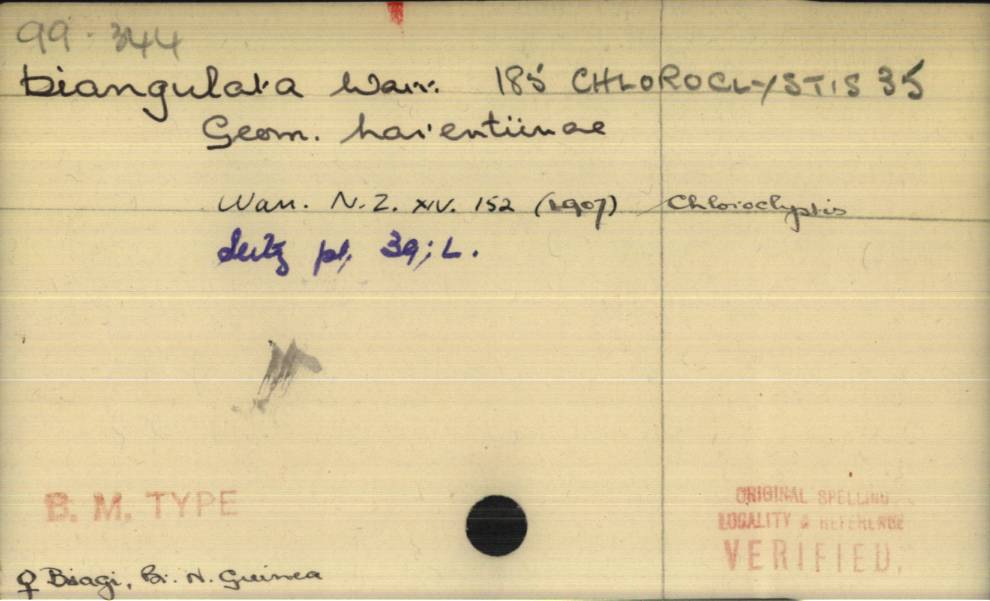 99.344
biangulata Warr. 185 CHLOROCLYSTIS 35
Geom. Larentiinae
Warr. N.Z. XIV. 152 (1907) Chloroclystis
Seitz pl. 39; L.
B. M. TYPE
ORIGINAL SPELLING
LOCALITY & REFERENCE
VERIFIED.
♀ Biagi, Br. N. Guinea